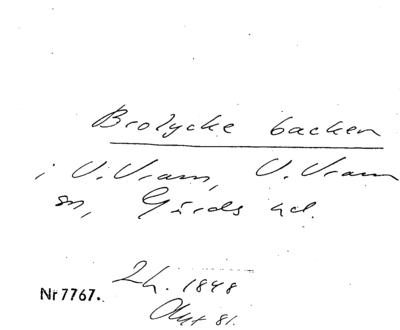 Brolycke backen
i V.Vram, V.Vram
sn, Gärds hd.
2h. 1848
Nr 7767.
Okt 81.